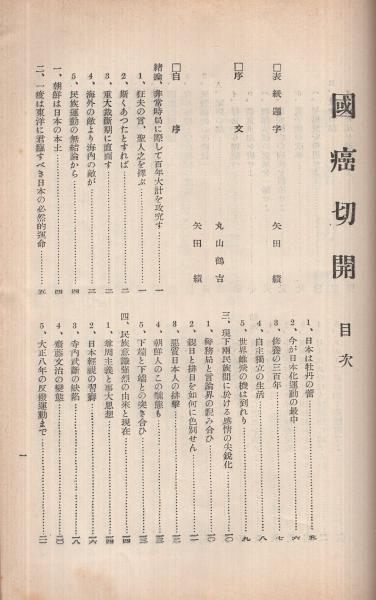 國癌切開 目次
□表紙題字……矢田績
□序文……丸山鶴吉
矢田績
□自序
緒論、非常時局に際して百年大計を攻究す……一
1、狂夫の言、聖人之を擇ぶ……一
2、斯くあつたとすれば……二
3、重大裁斷期に直面す……二
4、海外の敵より海內の敵が……三
5、民族運動の無結論から……四
一、朝鮮は日本の本土……四
二、一度は東洋に君臨すべき日本の必然的運命……五
1、日本は牡丹の蕾……五
2、今が日本化運動の最中……六
3、修養の三百年……七
4、自主獨立の生活……八
5、世界雄飛の機は到れり……九
三、現下兩民族間に於ける感情の尖銳化……一〇
1、警務局と言論界の睨み合ひ……一〇
2、親日と排日を如何に色別せん……一一
3、惡質日本人の排擊……一二
4、朝鮮人のこの醜態も……一三
5、下端と下端との突き合ひ……一三
四、民族意識强烈の由來と現在……一四
1、尊周主義と事大思想……一四
2、日本輕視の習癖……一六
3、寺內武斷の缺陷……一八
4、齋藤文治の變態……二〇
5、大正八年の反撥運動まで……二一
一